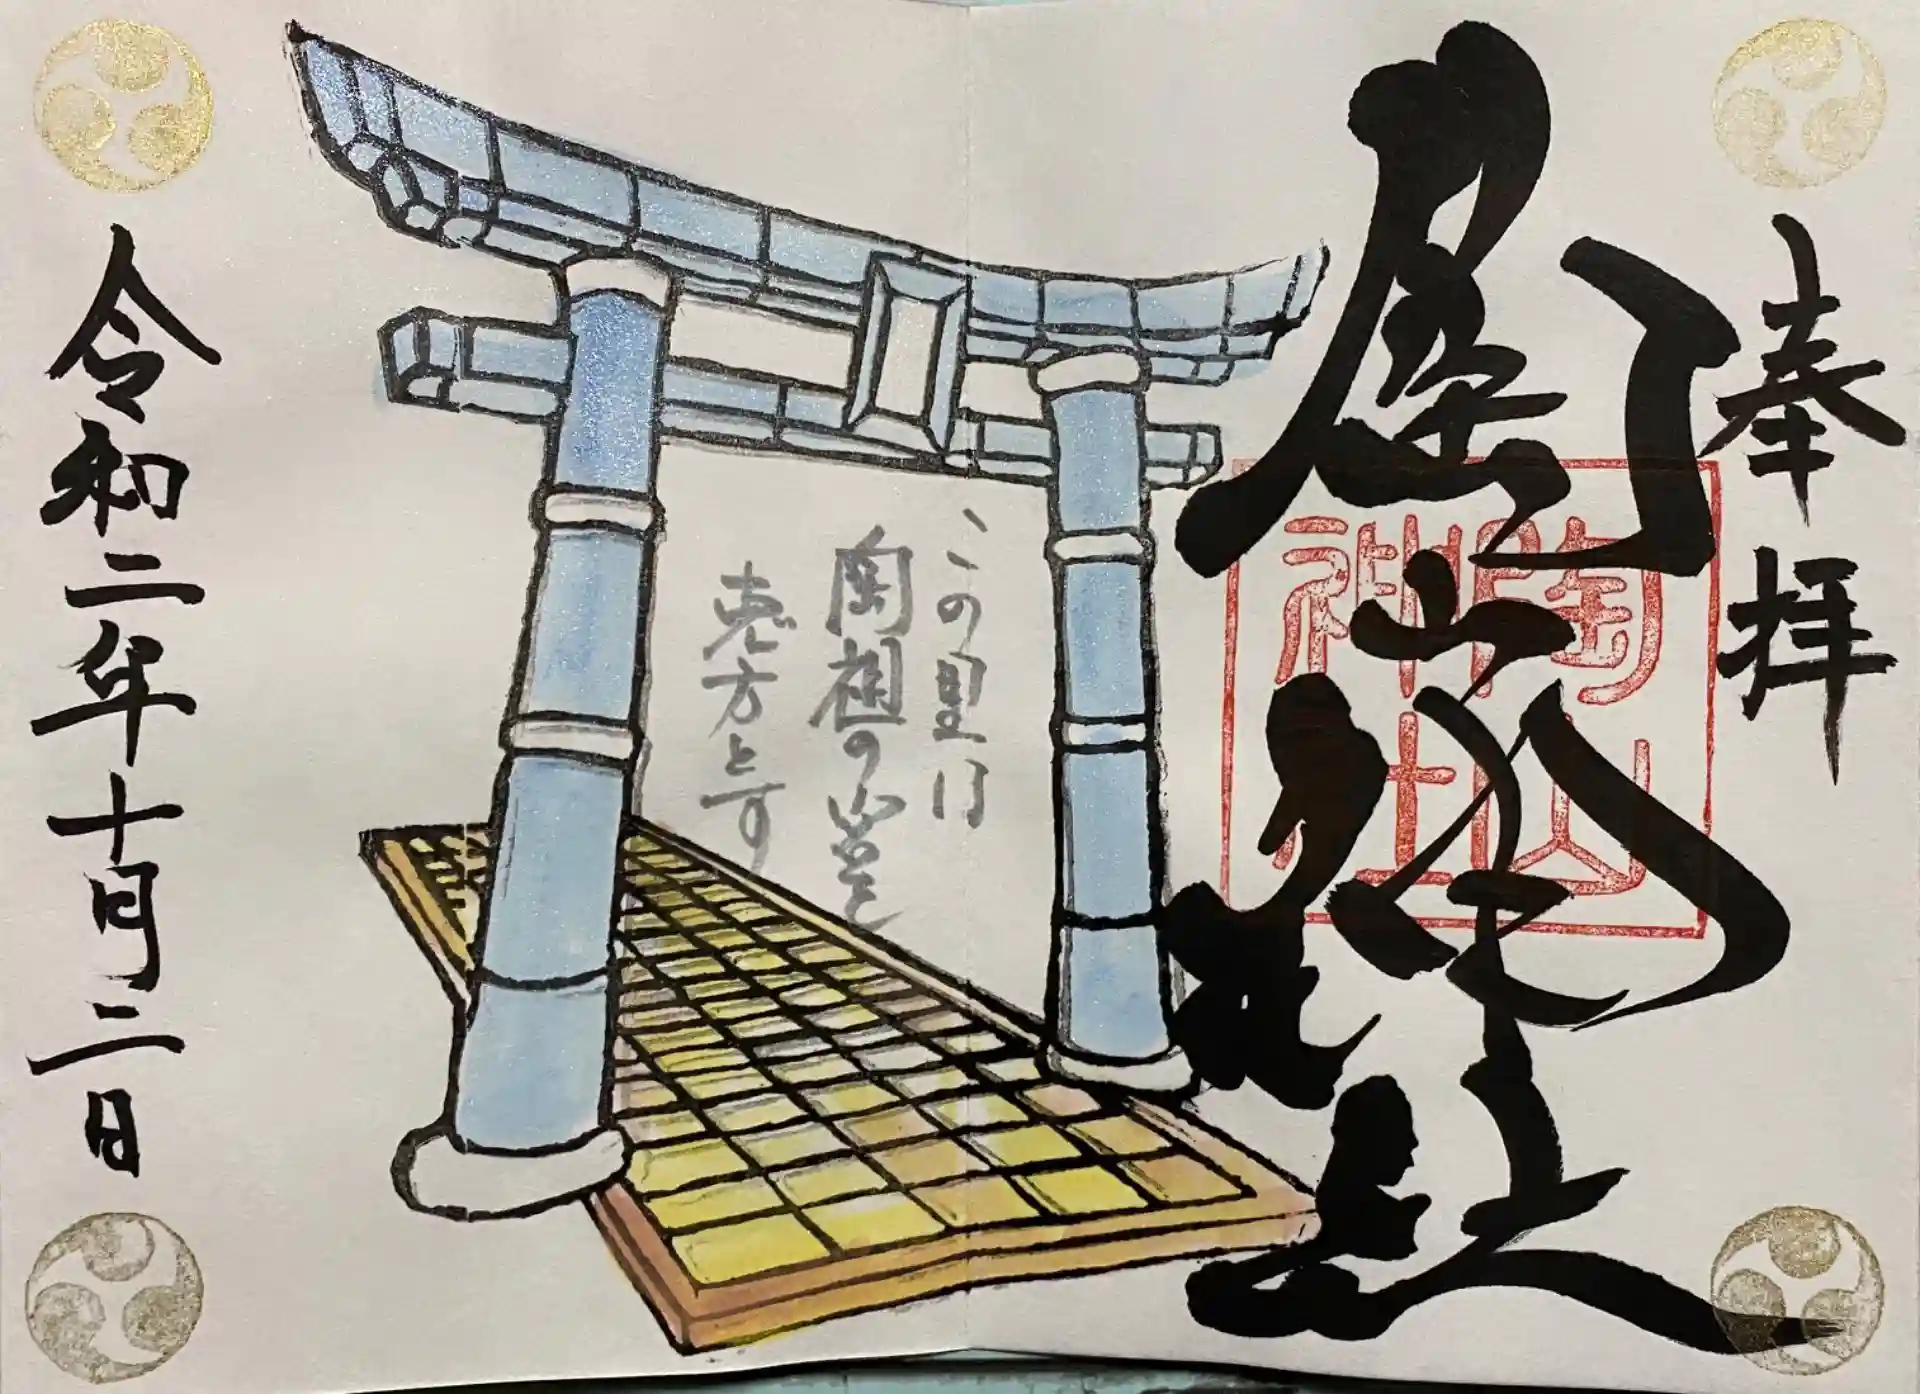 奉拝
陶山神社
陶山
神社
この里は
陶祖の窯を
恵方とす
令和二年十月二日